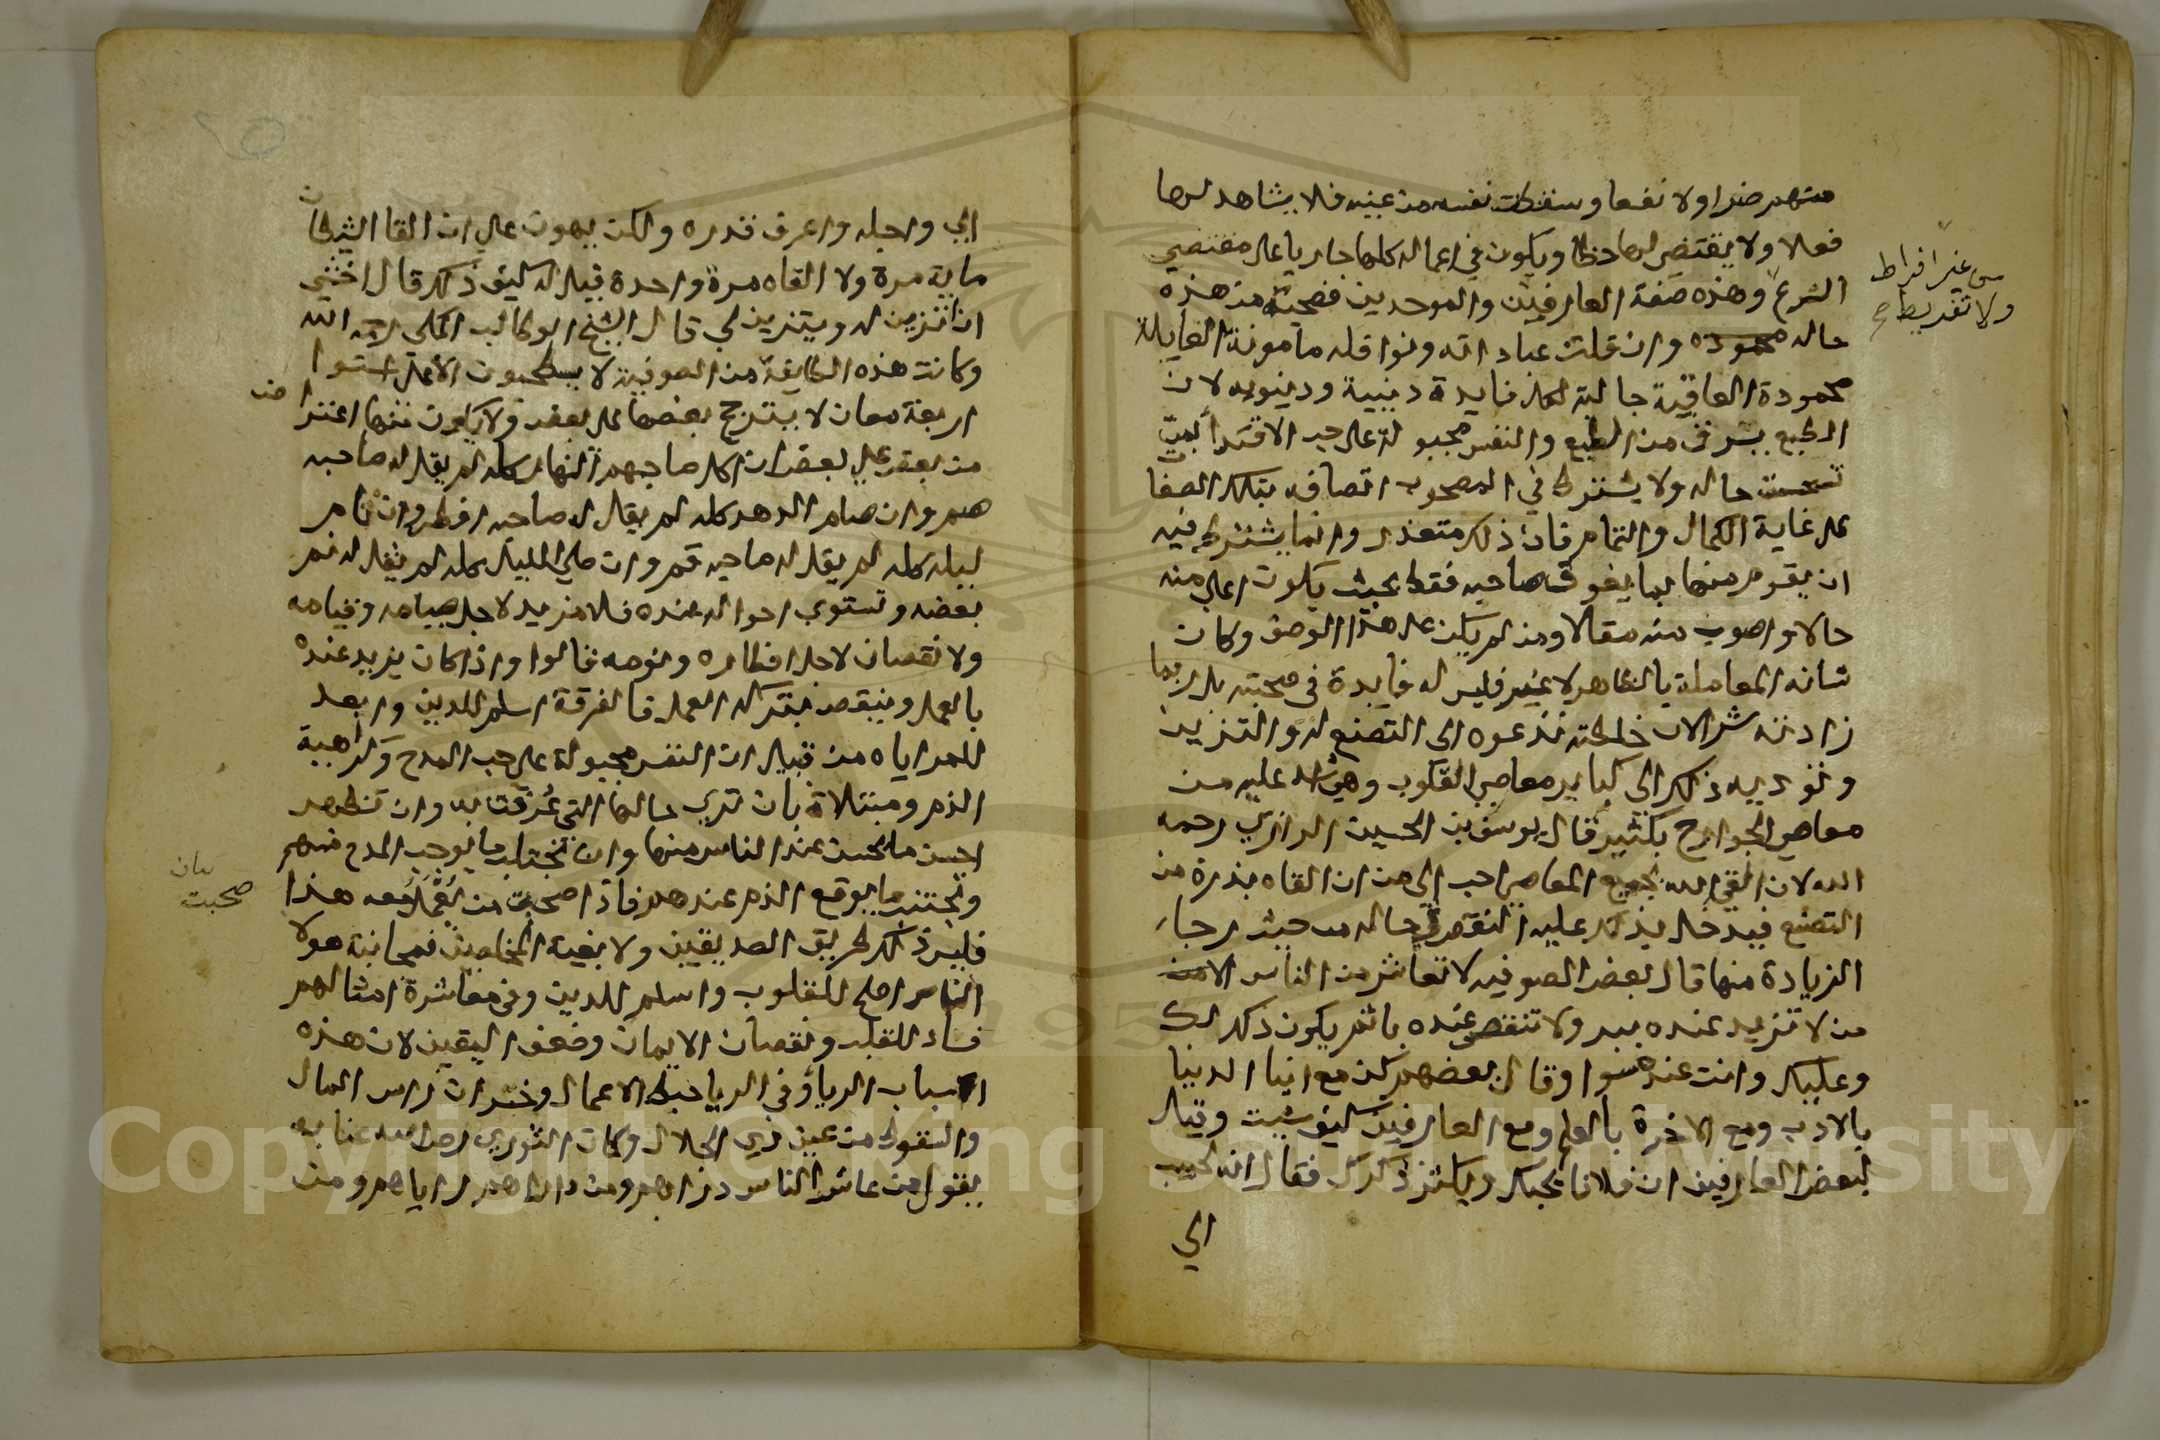 منهم ضرا ولا نفعا وسقطت نفسه من عينه فلا يشاهد لها
فعلا ولا يقتضي لها حظا ويكون في اعماله كلها جاريا على مقتضي
الشرع وهذه صفة العارفين والموحدين فصحبة من هذه
من غير افراط
ولا تفريط صح
حاله محموده وان قلت عباداته ونوافله مامونة الغايلة
محمودة العاقبة جالبة لكل فايدة دينية ودينويه لان
الطبع يسرق من الطبع والنفس مجبولة على حب الاقتدا بمن
تستحسن حاله ولا يشترط في المصحوب اتصافه بتلك الصفا
على غاية الكمال والتمام فان ذلك متعذر وانما يشترط فيه
ان يقوم منها بما يفوق صاحبه فقط بحيث يكون اعلى منه
حالا واصوب منه مقالا ومن لم يكن على هذا الوصف وكان
شانه المعاملة بالظاهر لا غير فليس له فايدة في صحبته بل ربما
زادته شرا لان خلطته تدعوه الى التصنع له والتزين
وتؤديه ذلك الى كباير معاصي القلوب وهي اشد عليه من
معاصي الجوارح بكثير قال يوسف بن الحسين الرازي رحمه
الله لان القى الله بجميع المعاصي احب الي من ان القاه بذرة من
التصنع فيدخل بذلك عليه النقص في حاله من حيث رجا
الزيادة منها قال بعض الصوفيه لا تعاشر من الناس الا من
من لا تزيد عنده ببر ولا تنقص عنده باثم يكون ذكر لك
وعليك وانت عنده سوا وقال بعضهم كن مع ابنا الدنيا
بالادب ومع الاخرة بالعلم ومع العارفين كيف شيت وقيل
لبعض العارفين ان فلانا يحبك ويكثر ذكرك فقال انه لحبيب
الي
الي واجله واعرف قدره ولكن يهون علي ان القا الشيطان
ماية مرة ولا القاه مرة واحدة قيل له كيف ذلك قال اخشي
ان اتزين له ويتزين لي قال الشيخ ابو طالب المكي رحمه الله
وكانت هذه الطايفة من الصوفية لا يصطحبون الا على استوا
اربعة معان لا يترجح بعضها على بعض ولا يكون فيها اعتراض
من بعض على بعض ان اكل صاحبهم النهار كله لم يقل له صاحبه
صم وان صام الدهر كله لم يقل له صاحبه افطر وان نام
ليله كله لم يقل له صاحبه قم وان صلي الليل كله لم يقل له نم
بعضه وتستوي احواله عنده فلا مزيد لاجل صيامه وقيامه
ولا نقصان لاجل افطاره ونومه قالوا واذا كان يزيد عنده
بالعمل وينقص بترك العمل فالفرقة اسلم للدين وابعد
للمراياه من قبيل ان النفس مجبولة على حب المدح وكراهية
الذم ومبتلاة بان تري حالها التي عرفت به وان تظهر
احسن ما يحسن عند الناس منها وان تجتلب ما يوجب المدح منهم
وتجتنب ما يوقع الذم عندهم فاذا صحبت من تعمل معه هذا
بيان
صحبت
فليس ذلك طريق الصديقين ولا بغية المخلصين فمجانبة هولا
الناس اصلح للقلوب واسلم للدين وفي معاشرة امثالهم
فساد للقلب ونقصان الايمان وضعف اليقين لان هذه
اسباب الريا وفي الريا حبط الاعمال وخسران راس المال
والسقوط من عين ذي الجلال وكان الثوري رضي الله عنه
يقول من عاشر الناس داراهم ومن داراهم راياهم ومن